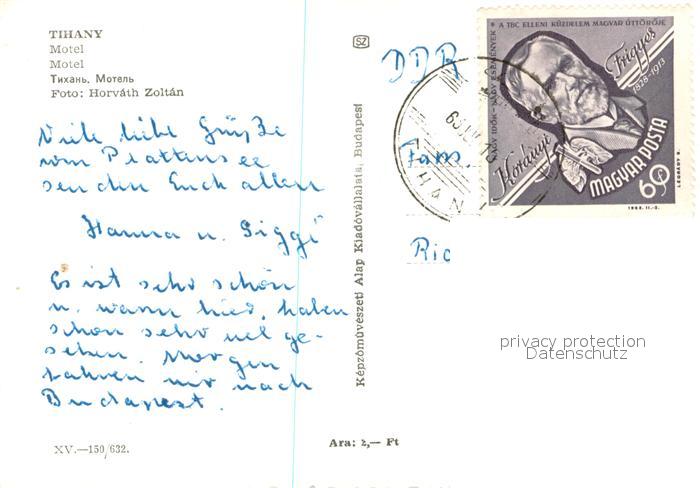 TIHANY
Motel
Motel
Тихань, Мотель
Foto: Horváth Zoltán
Viele liebe Grüße
vom Plattensee
senden Euch allen
Hanna u. Siggi
Es ist sehr schön
u. warm hier, haben
schon sehr viel ge-
sehen. Morgen
fahren wir nach
Budapest.
XV.—159/632.
SZ
Képzőművészeti Alap Kiadóvállalata, Budapest
Ara: 2,— Ft
DDR
Fam.
Ric
TIHANY
A TBC ELLENI KÜZDELEM MAGYAR ÚTTÖRŐJE
NAGY IDŐK - NAGY ESEMÉNYEK
Korányi
Frigyes
1828-1913
MAGYAR POSTA
60 f
LÉGRÁDY S.
privacy protection
Datenschutz